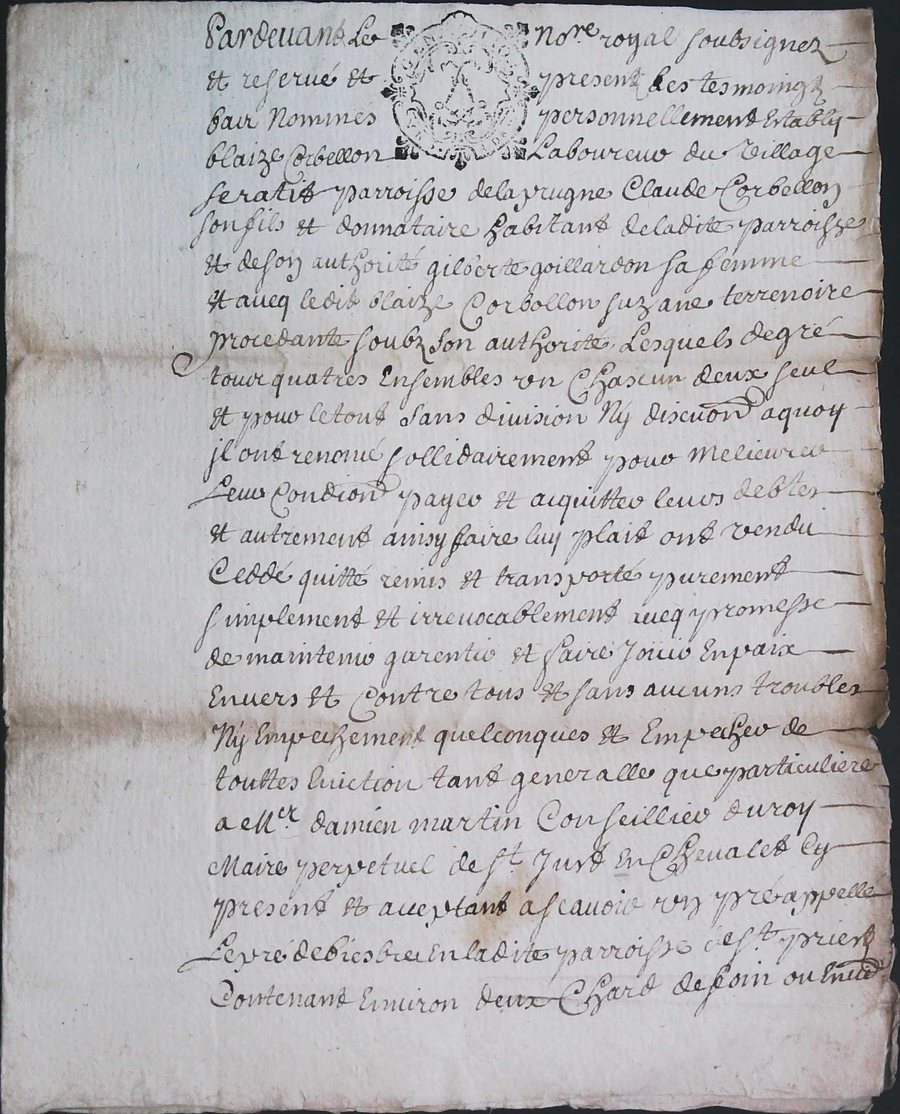 Pardevant Le No.re royal soubsignez
et reservé et present Les tesmoingz
bair Nommés personnellement Estably
blaize Corbellon Laboureur du Village
seratit parroisse delaprugne Claude Corbellon
son fils et donnataire habitant deladite parroisse
et deson authorité gilberte goillardon sa femme
et aveq ledit blaize Corbollon suzane terrenoire
procedante soubz son authorité Lesquels degré
tour quatres Ensembles un Chascun deux seul
et pour letout sans division Ny discution aquoy
jl ont renoncé sollidairement pour Melieurer
Leur Condi͠on payer et aiquitter leurs debtes
et autrement ainsy faire luy plait ont vendu
Ceddé quitté remis et transporté purement
simplement et irrevocablement aveq promesse
de maintenir garentir et faire Jouir Enpaix
Envers et Contre tous et sans aucuns troubles
Ny Empechement quelconques et Empecher de
touttes Eviction tant generalle que particuliere
a Mer. damien martin Conseillier duroy
Maire perpetuel de St. Just En Chevalet Cy
present et aceptant ascavoir un pré appellé
Lepré de Enladite parroisse de St. priest
Contenant Environ deux Chard defoin ou